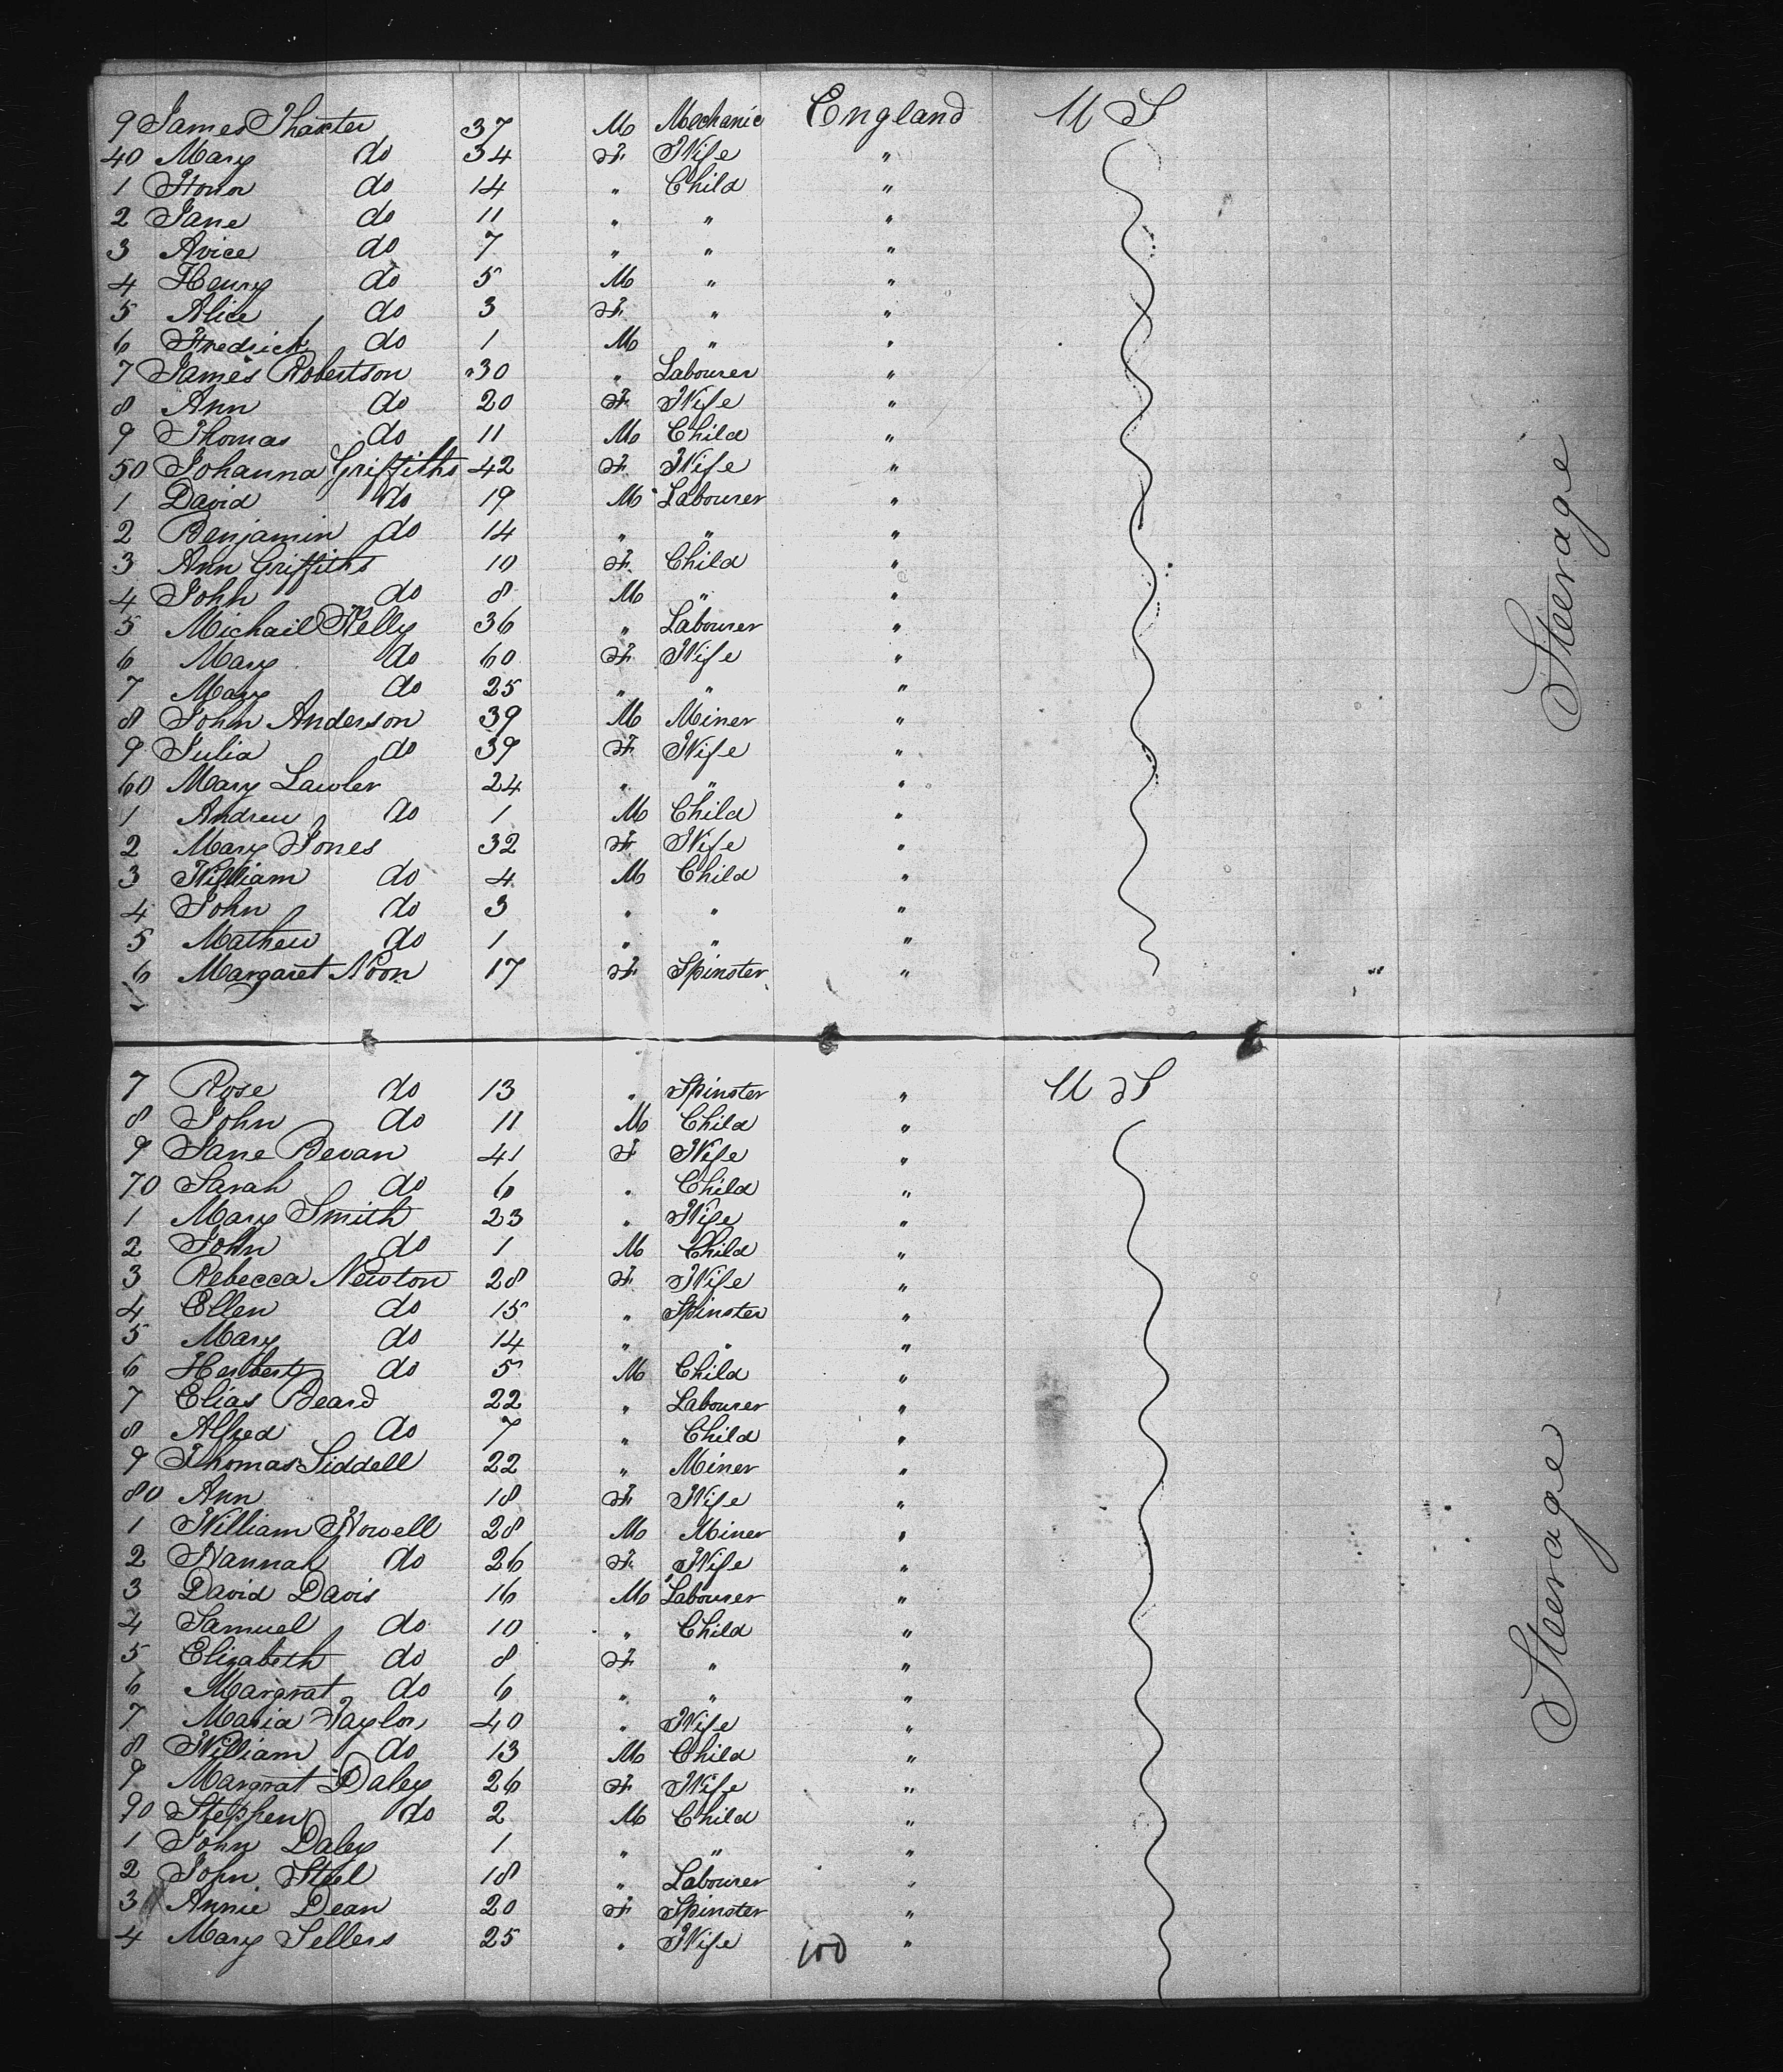 9 James Thaxter 37 M Mechanic England U S
40 Mary do 34 F. Wife "
1 Honor do 14 " Child "
2 Jane do 11 " " "
3 Avice do 7 " " "
4 Henry do 5 M " "
5 Alice do 3 F. " "
6 Fredrick do 1 M " "
7 James Robertson 30 " Labourer "
8 Ann do 20 F. Wife "
9 Thomas do 11 M Child "
50 Johanna Griffiths 42 F. Wife "
1 David do 19 M Labourer "
2 Benjamin do 14 " " "
3 Ann Griffiths 10 F. Child "
4 John do 8 M " "
5 Michail Kelly 36 " Labourer "
6 Mary do 60 F. Wife "
7 Mary do 25 " " "
8 John Anderson 39 M Miner "
9 Julia do 39 F. Wife "
60 Mary Lawler 24 " " "
1 Andrew do 1 M Child "
2 Mary Jones 32 F. Wife "
3 William do 4 M Child "
4 John do 3 " " "
5 Mathew do 1 " " "
6 Margaret Noon 17 F. Spinster "
Steerage
7 Rose do 13 " Spinster " U S
8 John do 11 M Child "
9 Jane Bevan 41 F Wife "
70 Sarah do 6 " Child "
1 Mary Smith 23 " Wife "
2 John do 1 M Child "
3 Rebecca Newton 28 F. Wife "
4 Ellen do 15 " Spinster "
5 Mary do 14 " " "
6 Herbert do 5 M Child "
7 Elias Beard 22 " Labourer "
8 Alfred do 7 " Child "
9 Thomas Siddell 22 " Miner "
80 Ann 18 F. Wife "
1 William Howell 28 M Miner "
2 Hannah do 26 F. Wife "
3 David Davis 16 M Labourer "
4 Samuel do 10 " Child "
5 Elizabeth do 8 F. " "
6 Margrat do 6 " " "
7 Maria Taylor 40 " Wife "
8 William do 13 M Child "
9 Margrat Daley 26 F. Wife "
90 Stephen do 2 M Child "
1 John Daley 1 " " "
2 John Steel 18 " Labourer "
3 Annie Dean 20 F. Spinster "
4 Mary Sellers 25 " Wife "
100
Steerage